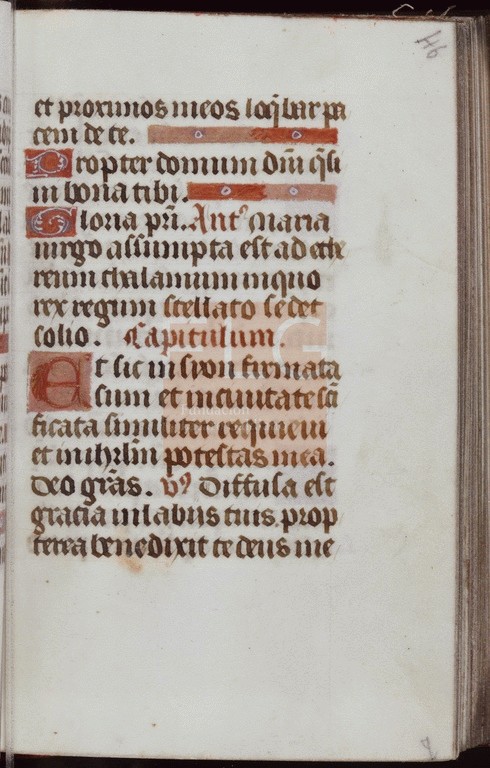 46
et proximos meos loq̄bar pa
cem de te.
Propter domum dn̄i q̄si
ui bona tibi.
Gloria pr̄i. Ant᷒ Maria
uirgo assumpta est ad ethe
reum thalamum in quo
rex regum stellato sedet
solio. Capitulum.
Et sic in syon firmata
sum et in ciuitate sc̄i
ficata similiter requieui
et in ihrl̄m potestas mea.
deo gr̄as. v᷒ Diffusa est
gracia in labiis tuis. prop
terea benedixit te deus in e
FLG
Fundación